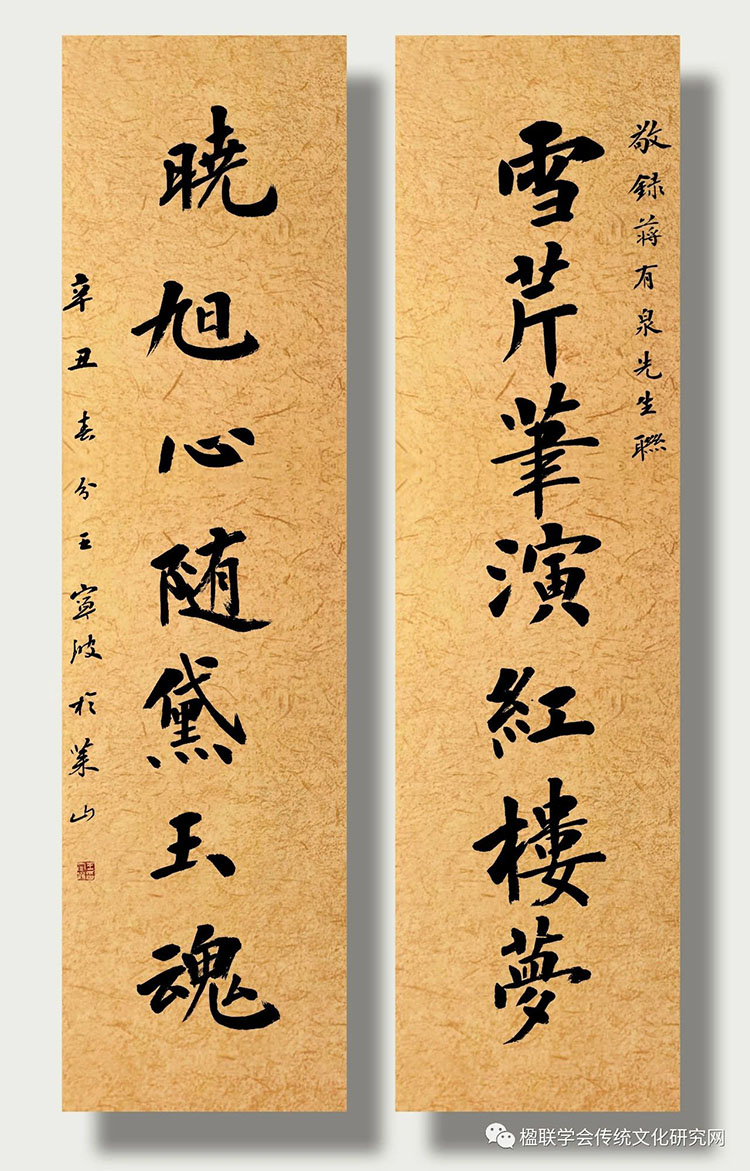 敬録蔣有泉先生聯
雪芹筆演紅樓夢
曉旭心随黛玉魂
辛丑春分王寧波於萊山
楹联学会传统文化研究网